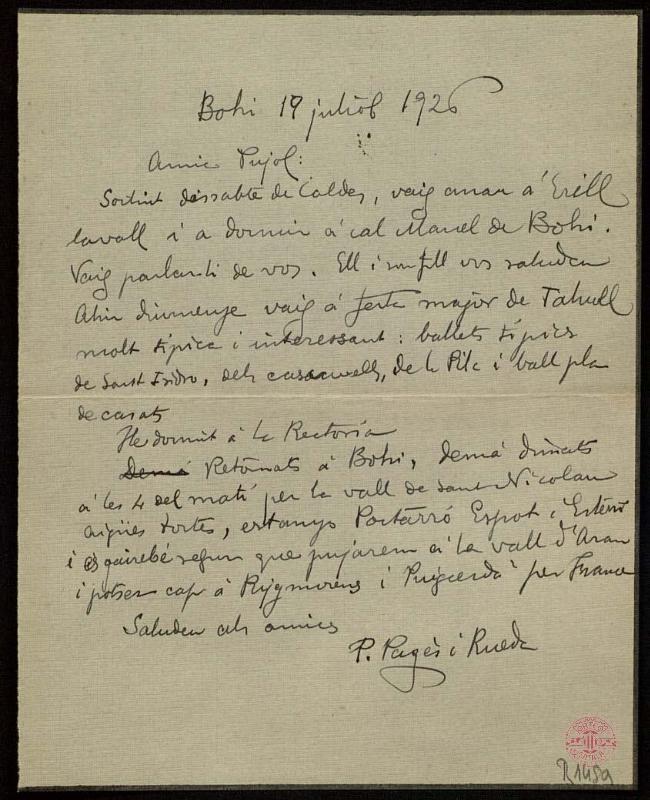 Bohi 19 juliol 1926
Amic Pujol:
Sortint dissabte de Caldes, vaig anar a Erill
lavall i a dormir á cal Manel de Bohi.
Vaig parlarli de vos. Ell i son fill vos saluden
Ahir diumenje vaig á festa major de Tahull
molt típica i interessant: ballets típics
de Sant Isidro, dels casacwells, de la Pila i ball pla
de casats
He dormit á la Rectoría
Demá Retornats á Bohi, demá dimats
á les 4 del matí per la vall de Sant Nicolau
aigües tortes, estanys Portarró Espot i Esterri
i es gairebé segur que pujarem á la vall d'Aran
i potser cap á Puigmorens i Puigcerdá per France
Saludeu als amics
P. Pagès i Rueda
B1489